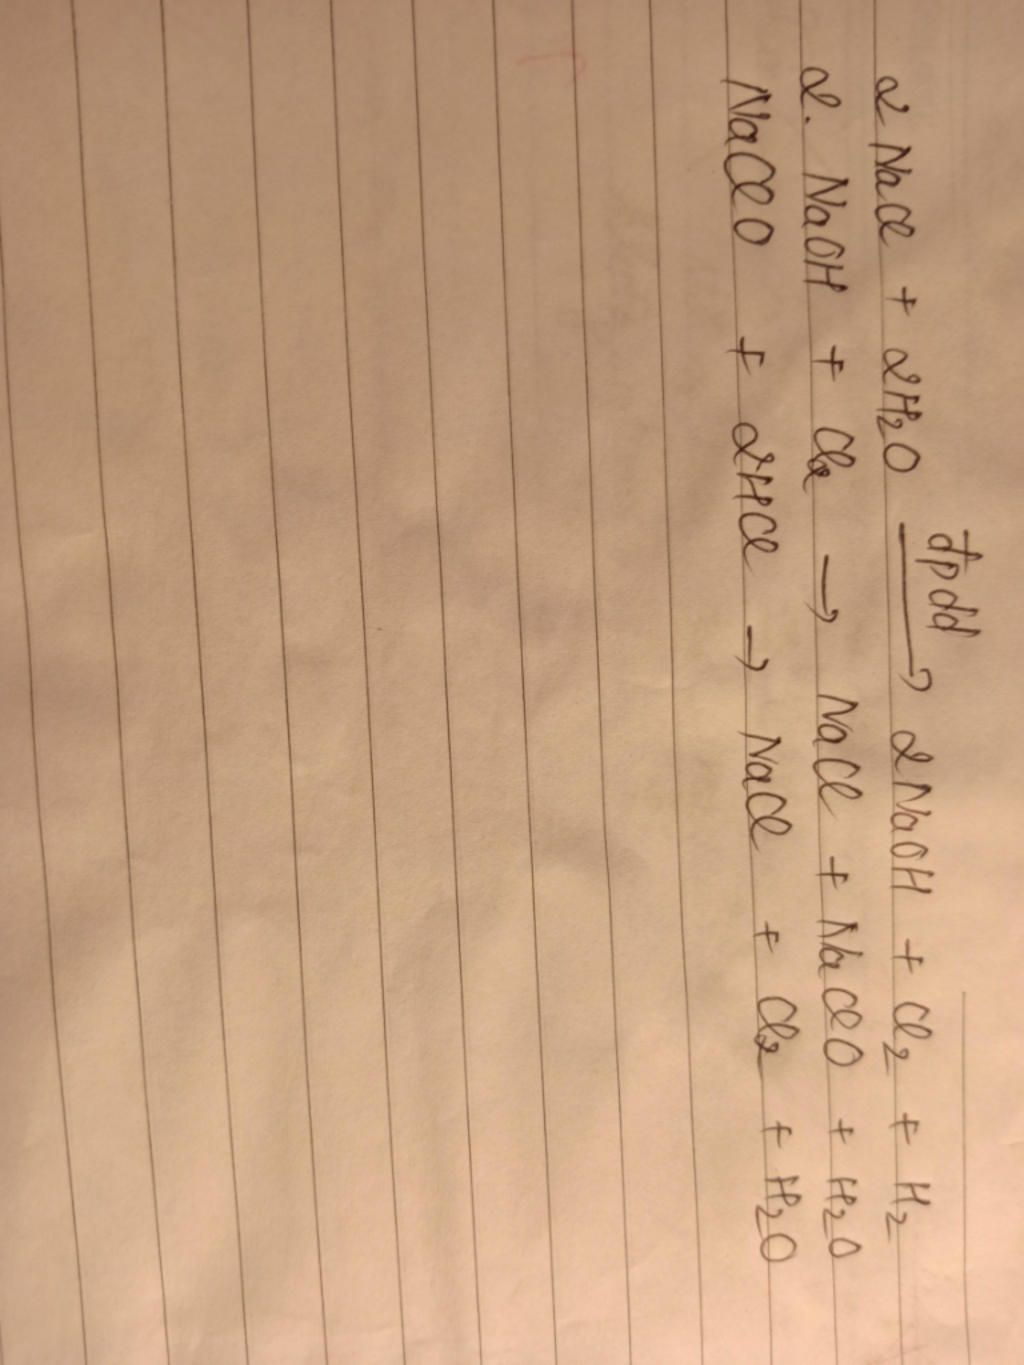 đpdd
2 NaCl + 2H₂O ⟶ 2NaOH + Cl₂ + H₂
2. NaOH + Cl₂ → NaCl + NaClO + H₂O
NaClO + 2HCl → NaCl + Cl₂ + H₂O